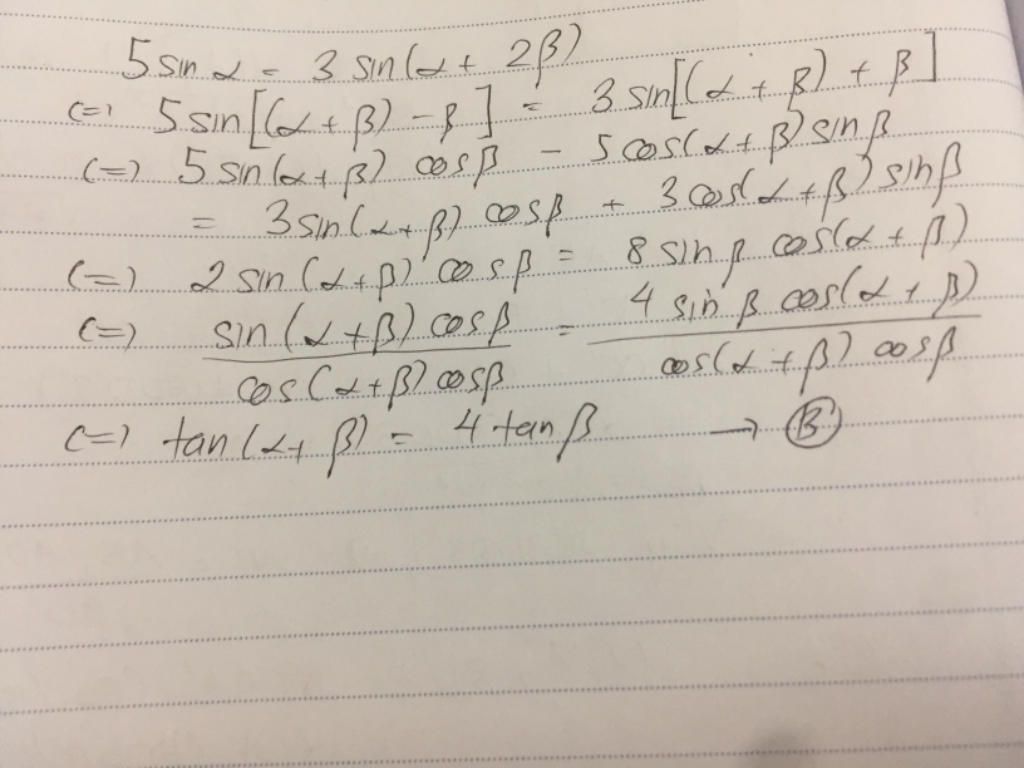 5 sin α = 3 sin(α + 2β)
(=) 5 sin[(α + β) - β] = 3 sin[(α + β) + β]
(=) 5 sin(α + β) cosβ - 5 cos(α + β) sinβ
= 3 sin(α + β) cosβ + 3 cos(α + β) sinβ
(=) 2 sin(α + β) cosβ = 8 sin β cos(α + β)
(=) sin(α + β) cosβ / cos(α + β) cosβ = 4 sin β cos(α + β) / cos(α + β) cosβ
(=) tan(α + β) = 4 tan β → Ⓑ